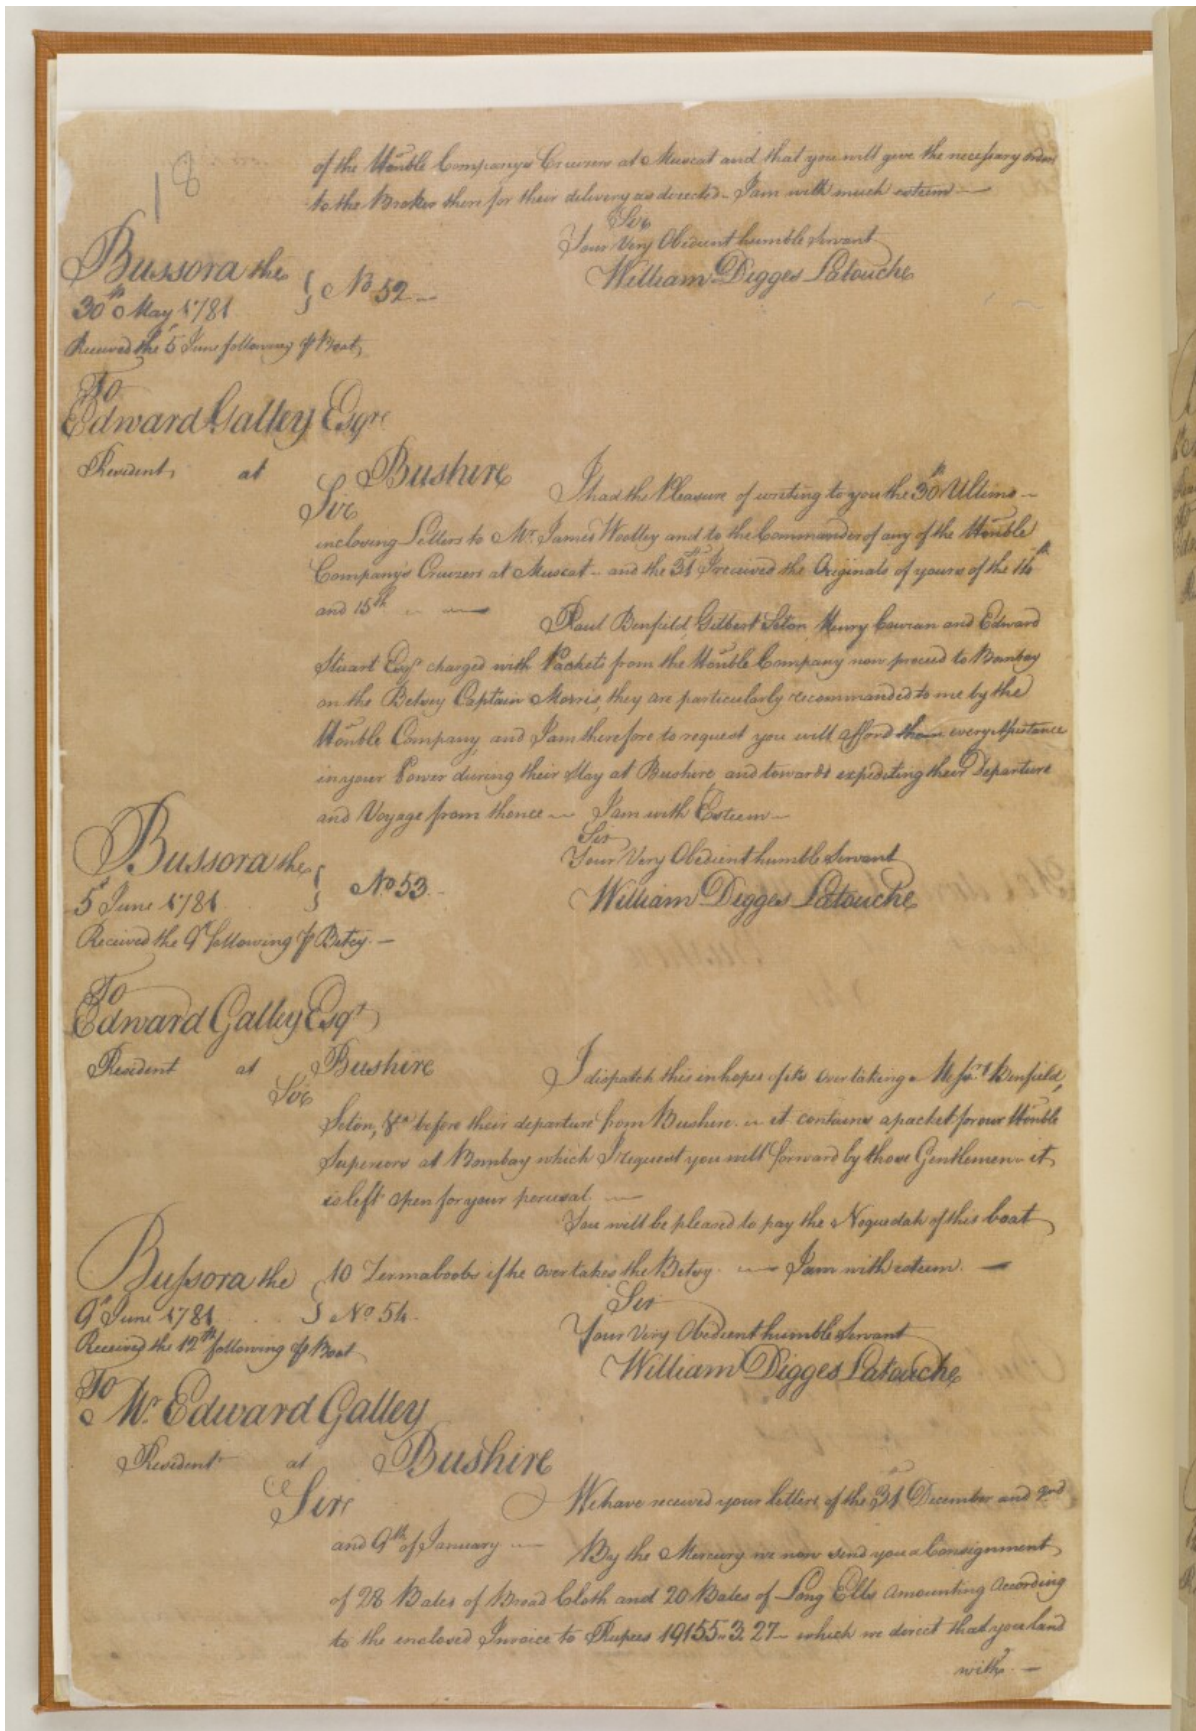 18
of the Honble Company's Cruisers at Muscat and that you will give the necessary orders
to the Broker there for their delivery as directed - I am with much esteem -
Sir
Your Very Obedient humble Servant
William Digges Latouche
Bussora the
30th May 1781 } No 52 -
Received the 5 June following P Boat
To
Edward Galley Esqre
Resident at Bushire
Sir I had the Pleasure of writing to you the 30th Ultimo -
inclosing Letters to Mr. James Woolley and to the Commander of any of the Honble
Company's Cruizers at Muscat - and the 31st I received the Originals of yours of the 14th
and 15th
Paul Benfield, Gilbert Seton, Henry Cowran and Edward
Stuart Esqrs charged with Packets from the Honble Company now proceed to Bombay
on the Betsey Captain Morris, they are particularly recommanded to me by the
Honble Company, and I am therefore to request you will afford them every Assistance
in your Power during their Stay at Bushire, and towards expediting their Departure
and Voyage from thence - I am with Esteem -
Sir
Your Very Obedient humble Servant
William Digges Latouche
Bussora the
5th June 1781 } No 53 -
Received the 9th following P Betsy -
To
Edward Galley Esqr
Resident at Bushire
Sir I dispatch this in hopes of its overtaking Messrs Benfield,
Seton, &ca before their departure from Bushire - it contains a packet for our Honble
Superiors at Bombay which I request you will forward by those Gentlemen - it
is left open for your perusal -
You will be pleased to pay the Noquedah of this boat
10 Zermaboobs if he overtakes the Betsy - I am with esteem -
Sir
Your Very Obedient humble Servant
William Digges Latouche
Bussora the
9th June 1781 } No 54
Received the 12th following P Boat
To
Mr Edward Galley
Resident at Bushire
Sir We have received your letters of the 31st December and 2nd
and 9th of January - By the Mercury we now send you a Consignment
of 28 Bales of Broad Cloth and 20 Bales of Long Ells amounting according
to the enclosed Invoice to Rupees 19155 " 3. 27 - which we direct that you land
with -